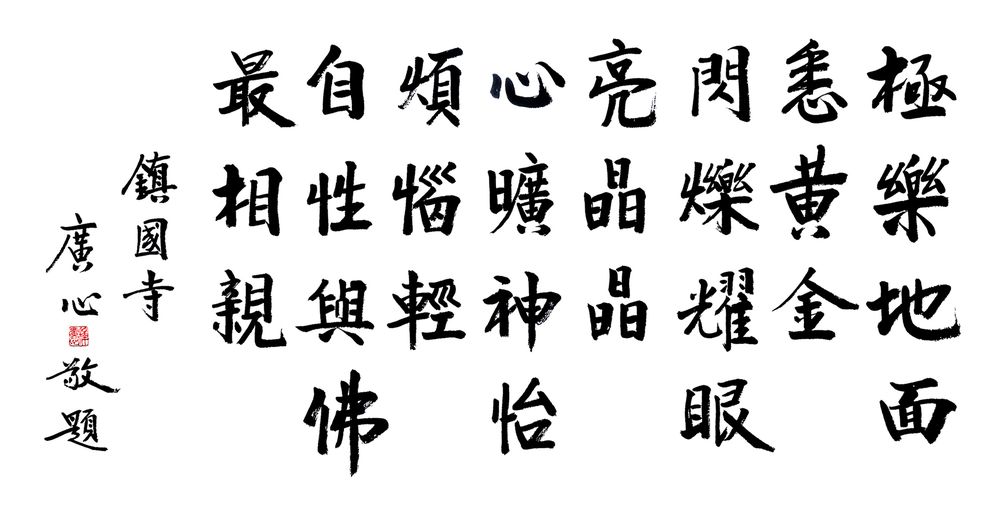 極樂地面
悉黃金
閃爍耀眼
亮晶晶
心曠神怡
煩惱輕
自性與佛
最相親
鎮國寺
廣心敬題